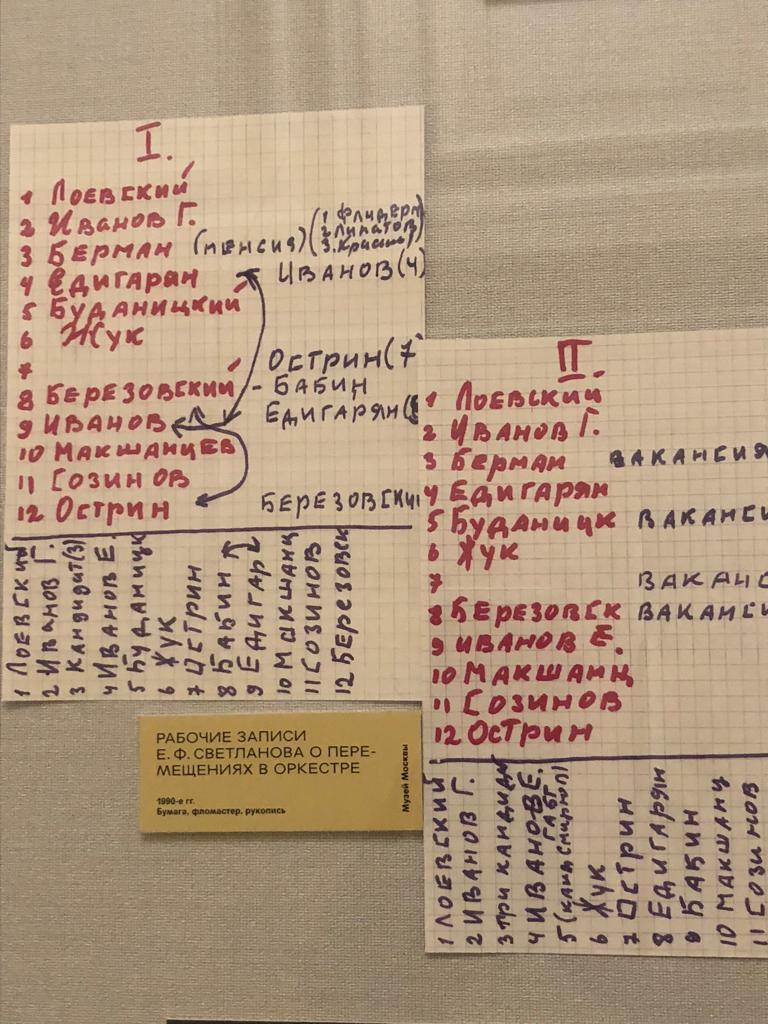 I.
1 Лоевский
2 Иванов Г.
3 Берман (пенсия) (1. Флидерм
2 Липатов
3. Красн
4 Едигарян Иванов (4)
5 Буданицкий
6 Жук
7 Острин (7
8 Березовский - Бабин
9 Иванов Едигарян (
10 Макшанцев
11 Созинов
12 Острин Березовски
1 Лоевский
2 Иванов Г.
3 Кандидат (3)
4 Иванов Е.
5 Буданицк
6 Жук
7 Острин
8 Бабин
9 Едигар
10 Макшанц
11 Созинов
12 Березовск
II.
1 Лоевский
2 Иванов Г.
3 Берман ВАКАНСИЯ
4 Едигарян
5 Буданицк ВАКАНСИ
6 Жук
7 ВАКАНС
8 Березовск ВАКАНСИ
9 Иванов Е.
10 Макшанц
11 Созинов
12 Острин
1 Лоевский
2 Иванов Г.
3 три кандидат
4 Иванов Е.
ГАБТ
5 (канд Смирнов)
6 Жук
7 Острин
8 Едигарян
9 Бабин
10 Макшанц
11 Созинов
РАБОЧИЕ ЗАПИСИ
Е. Ф. СВЕТЛАНОВА О ПЕРЕ-
МЕЩЕНИЯХ В ОРКЕСТРЕ
1990-е гг.
Бумага, фломастер, рукопись
Музей Москвы